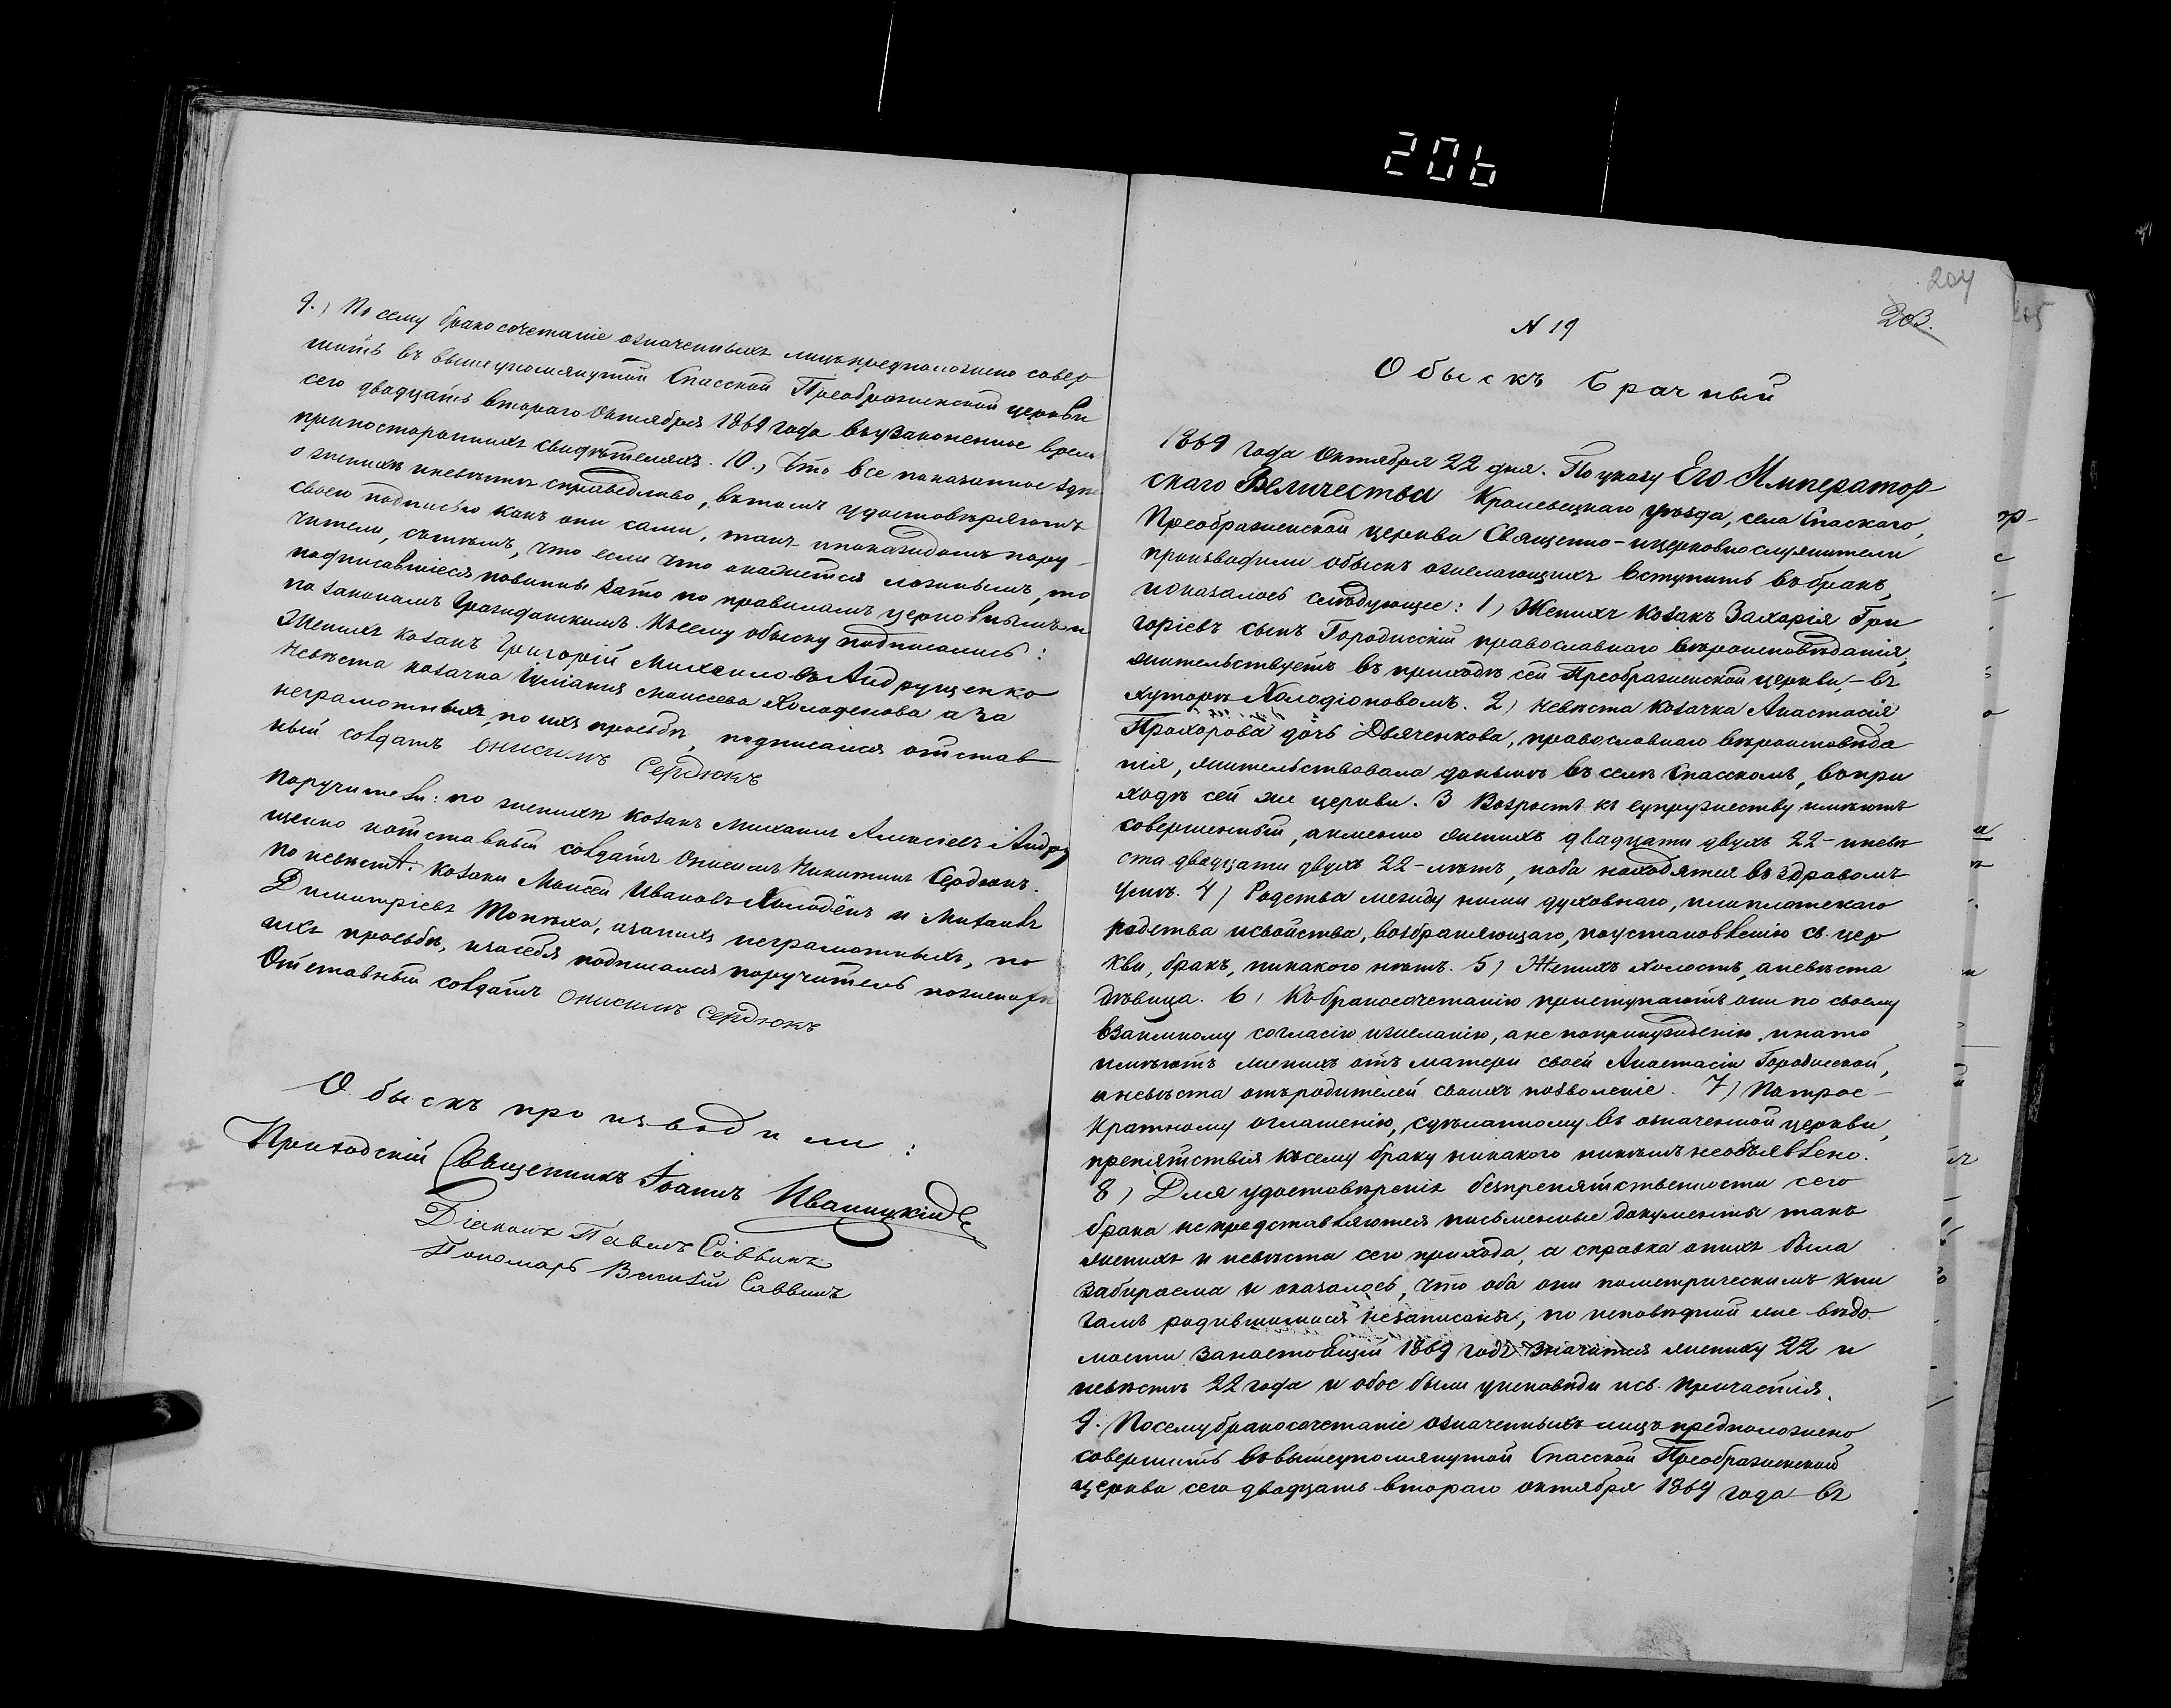 206
9.) По сему бракосочетаніе означенныхъ лицъ предположено совер
шить въ вышеупомянутой Спасской Преображенской церкви
сего двадцать втораго Октября 1869 года въ узаконенное время
при постороннихъ свидѣтеляхъ. 10.) Что все показанное здѣ
о женихѣ и невѣстѣ справедливо, въ томъ удостовѣряютъ
своею подписью какъ они сами, такъ и показаннымъ пору-
чители, съ тѣмъ, что если что окажется ложнымъ, то
подписавшіеся повинны за то по правиламъ церковнымъ и
по законамъ Гражданскимъ. Къ сему обыску подписались:
Женихъ козакъ Григорій Михаиловъ Андрущенко
Невѣста козачка Іуліанія Моисеева Холоденова а за
неграмотныхъ, по ихъ просьбѣ, подписался отстав
ный солдатъ Онисимъ Сердюкъ
Поручители: по женихѣ козакъ Михаилъ Алексіевъ Андру
щенко и отставный солдатъ Онисимъ Никитинъ Сердюкъ.
По невѣстѣ: козаки Моисей Ивановъ Холоденъ и
Димитріевъ а за нихъ неграмотныхъ, по
ихъ просьбѣ, и за себя подписался поручитель по женихѣ
Отставный солдатъ Онисимъ Сердюкъ
Обыскъ производили:
Приходскій Священникъ Іоаннъ Иваницкій
Діаконъ Павелъ Саввинъ
Пономарь Василій Саввинъ
204
203.
N 19
Обыскъ Брачный
1869 года Октября 22 дня. По указу Его Император
скаго Величества Кролевецкаго уѣзда, села Спаскаго,
Преображенской церкви Священно-и церковнослужители
производили обыскъ о желающихъ вступить въ бракъ,
и оказалось слѣдующее: 1) Женихъ козакъ Захарія Гри
горіевъ сынъ Городисскій православнаго вѣроисповѣданія,
жительствуетъ въ приходѣ сей Преображенской церкви,- въ
хуторѣ Холодіоновомъ. 2) Невѣста козачка Анастасія
Прохорова дочь Дьяченкова, православнаго вѣроисповѣда
нія, жительствовала донынѣ въ селѣ Спасскомъ, въ при
ходѣ сей же церкви. 3 Возрастъ къ супружеству имѣютъ
совершенный, а именно женихъ двадцати двухъ 22-и невѣ
ста двадцати двухъ 22-лѣтъ, и оба находятся въ здравомъ
умѣ. 4) Родства между ними духовнаго, или плотскаго
родства и свойства, возбраняющаго, по установленію св. цер
кви, бракъ, никакого нѣтъ. 5) Женихъ холостъ, а невѣста
дѣвица. 6) Къ бракосочетанію приступаютъ они по своему
взаимному согласію и желанію, а не по принужденію, и на то
имѣютъ женихъ отъ матери своей Анастасіи Городисской,
а невѣста отъ родителей своихъ позволеніе. 7) По трое-
кратному оглашенію, сдѣланному въ означенной церкви,
препятствія къ сему браку никакого никѣмъ не объявлено.
8) Для удостовѣренія безпрепятственности сего
брака не представляются письменные документы такъ
женихъ и невѣста сего прихода, а справка о нихъ была
забираема и оказалось, что оба они по метрическимъ кни
гамъ родившимися незаписаны, по исповѣдной же вѣдо
мости за настоящій 1869 годъ значится жениху 22 и
невѣстѣ 22 года и обое были у исповѣди и св. Причастія.
9. По сему бракосочетаніе означенныхъ лицъ предположено
совершить въ вышеупомянутой Спасской Преображенской
церкви сего двадцать втораго октября 1869 года въ